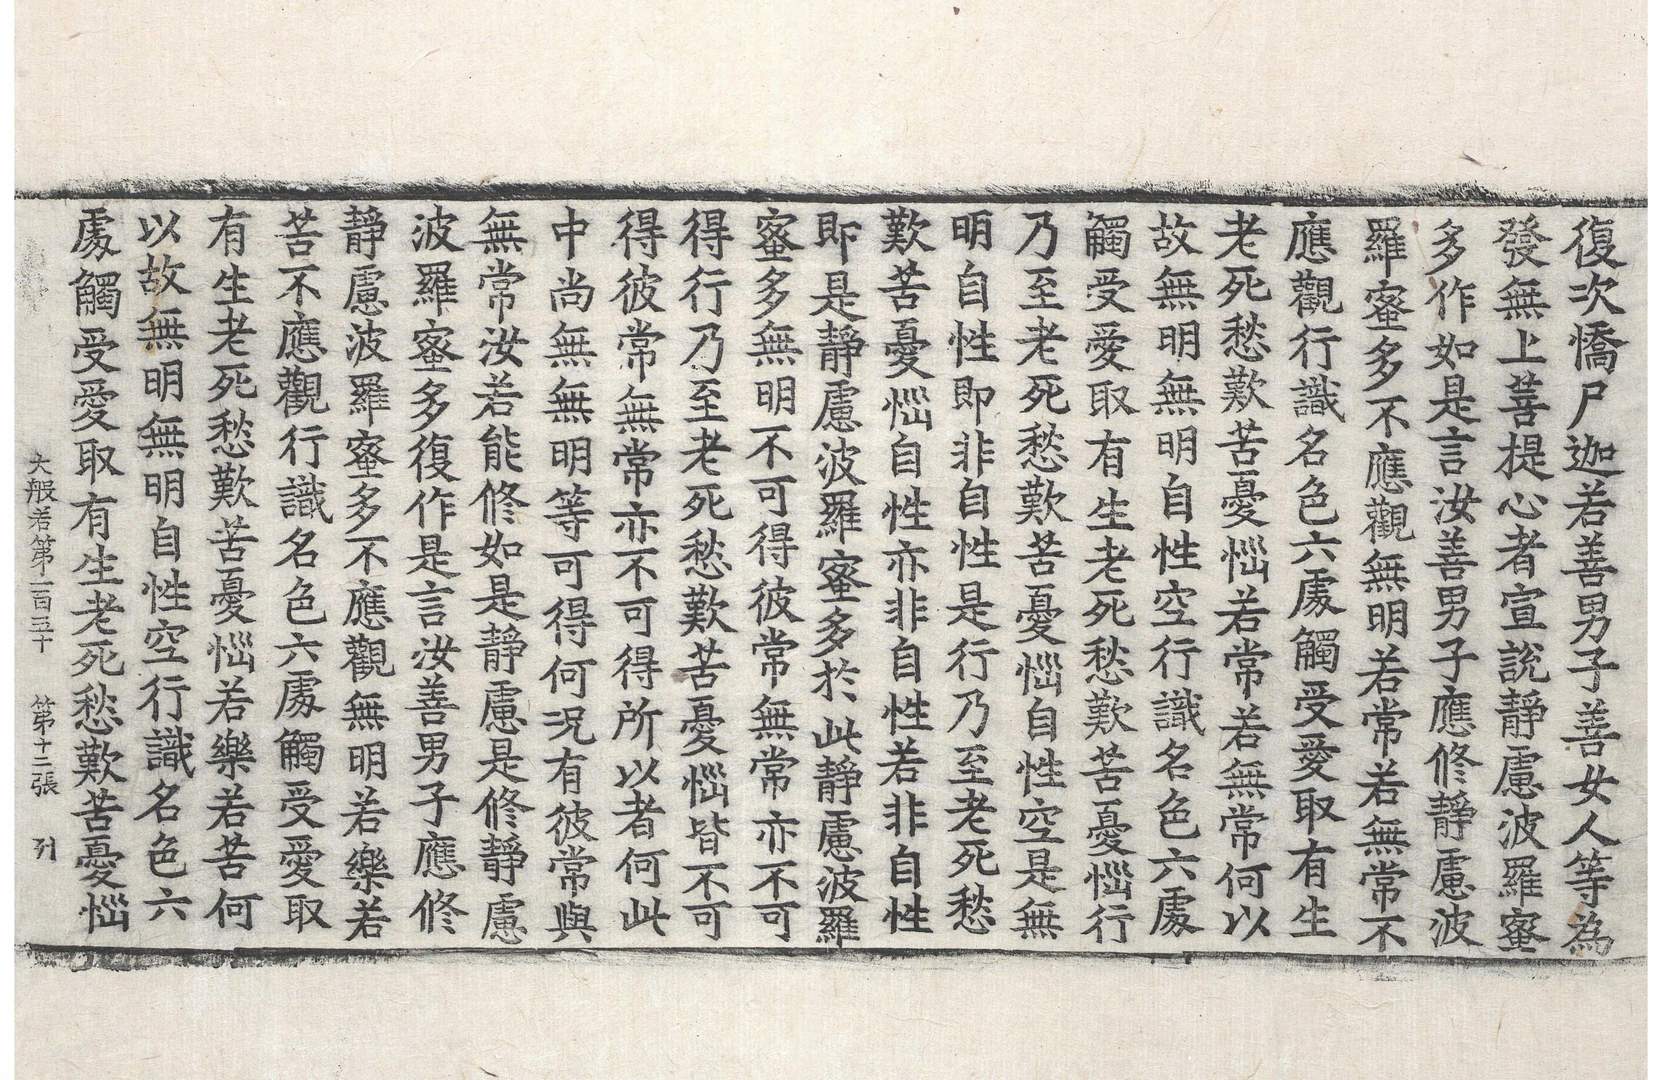 復次憍尸迦若善男子善女人等為
發無上菩提心者宣說靜慮波羅蜜
多作如是言汝善男子應修靜慮波
羅蜜多不應觀無明若常若無常不
應觀行識名色六處觸受愛取有生
老死愁歎苦憂惱若常若無常何以
故無明無明自性空行識名色六處
觸受愛取有生老死愁歎苦憂惱行
乃至老死愁歎苦憂惱自性空是無
明自性即非自性是行乃至老死愁
歎苦憂惱自性亦非自性若非自性
即是靜慮波羅蜜多於此靜慮波羅
蜜多無明不可得彼常無常亦不可
得行乃至老死愁歎苦憂惱皆不可
得彼常無常亦不可得所以者何此
中尚無無明等可得何況有彼常與
無常汝若能修如是靜慮是修靜慮
波羅蜜多復作是言汝善男子應修
靜慮波羅蜜多不應觀無明若樂若
苦不應觀行識名色六處觸受愛取
有生老死愁歎苦憂惱若樂若苦何
以故無明無明自性空行識名色六
處觸受愛取有生老死愁歎苦憂惱
大般若第一百五十 第十二張 列